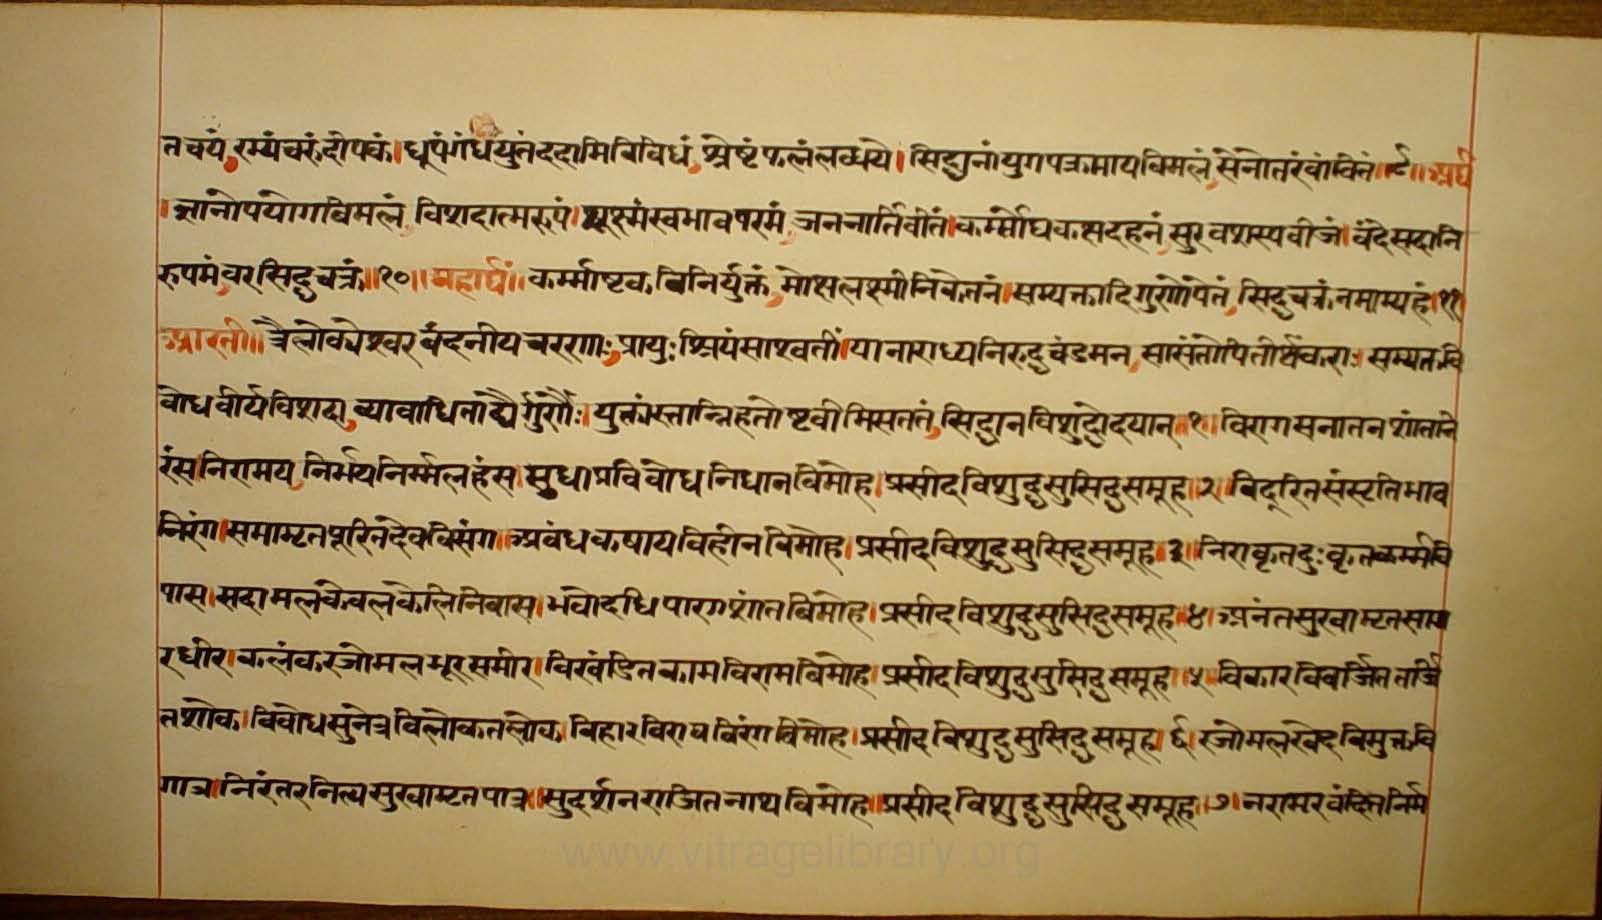 तचयं रम्यंचरुंदीपकं।धूपंगंधंयुतंददामिविविधं श्रेष्टंफलंलब्धये। सिद्धानांयुगपत्क्रमायविमलं सेनोतरंवांछितं॥९॥अर्घं
।ज्ञानोपयोगविमलं विशदात्मरुपं।सूक्ष्मंस्वभावपरमं जननार्तिवीतं।कर्म्मौघकक्षदहनं सुखशस्यवीजं।वंदेसदानि
रुपमंवरसिद्धचक्रं॥१०॥महार्घं॥कर्म्माष्टकविनिर्युक्तं मोक्षलक्ष्मीनिकेतनं।सम्यक्तादिगुणोपेतं सिद्धचक्रंनमाम्यहं॥११
आरती॥त्रैलोक्येश्वरवंदनीयचरणाः प्रायुःश्रियंसाश्वतीं।यानाराध्यनिरुद्धचंडमन सासंतोपितीर्थंकराः सम्यतवि
वोधवीर्यविशदा व्यावाधिताद्यैर्गुणैः।युक्तांस्तान्निहतोष्टवीमिसततं सिद्धानविशुद्धोदयान्॥१।विरागसनातनशांतनि
रंस।निरामय निर्भयनिर्म्मलहंस।सुधाप्रविवोधनिधानविमोह।प्रसीदविशुद्धसुसिद्धसमूह।२।विदूरितसंसृतिभाव
निरंग।समामृतपूरितदेवविसंग।अवंधकषायविहीनविमोह।प्रसीदविशुद्धसुसिद्धसमूह।३।निराकृतदुःकृतकर्म्मवि
पास।सदामलकेवलकेलिनिवास।भवोदधिपारगशांतविमोह।प्रसीदविशुद्धसुसिद्धसमूह।४।अनंतसुखामृतसाग
रधीर।कलंकरजोमलभूरसमीर।विखंडितकामविरामविमोह।प्रसीदविशुद्धसुसिद्धसमूह।५।विकारविवर्जिततर्जि
तशोक।विवोधसुनेत्रविलोकतलोक।विहारविरावविरंगविमोह।प्रसीदविशुद्धसुसिद्धसमूह।६।रजोमलखेदविमुक्तवि
गात्र।निरंतरनित्यसुखामृतपात्र।सुदर्शनराजितनाथविमोह।प्रसीदविशुद्धसुसिद्धसमूह।७।नरामरवंदितनिर्म
www.vitragelibrary.org